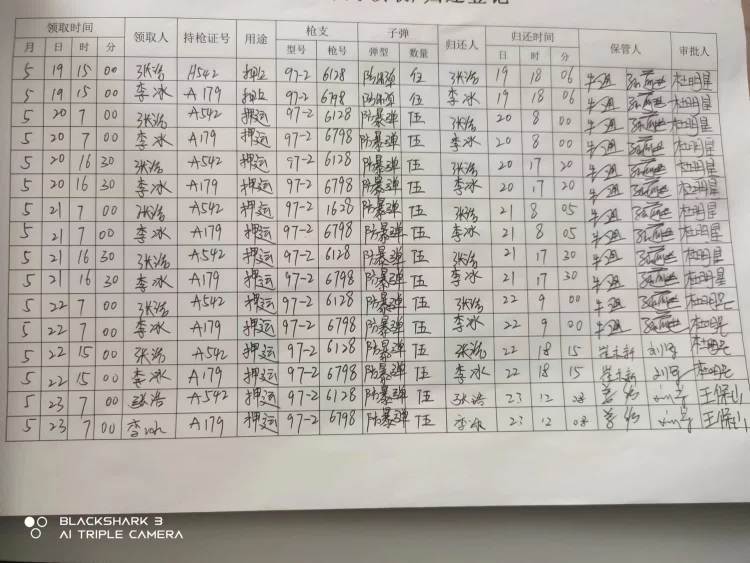 领取时间 领取人 持枪证号 用途 枪支 子弹 归还人 归还时间 保管人 审批人
月 日 时 分 型号 枪号 弹型 数量 日 时 分
5 19 15 00 张浩 A542 押运 97-2 6128 防暴弹 伍 张浩 19 18 06 杜明星
5 19 15 00 李冰 A179 押运 97-2 6798 防暴弹 伍 李冰 19 18 06 杜明星
5 20 7 00 张浩 A542 押运 97-2 6128 防暴弹 伍 张浩 20 8 00 杜明星
5 20 7 00 李冰 A179 押运 97-2 6798 防暴弹 伍 李冰 20 8 00 杜明星
5 20 16 30 张浩 A542 押运 97-2 6128 防暴弹 伍 张浩 20 17 20 杜明星
5 20 16 30 李冰 A179 押运 97-2 6798 防暴弹 伍 李冰 20 17 20 杜明星
5 21 7 00 张浩 A542 押运 97-2 1628 防暴弹 伍 张浩 21 8 05 杜明星
5 21 7 00 李冰 A179 押运 97-2 6798 防暴弹 伍 李冰 21 8 05 杜明星
5 21 16 30 张浩 A542 押运 97-2 6128 防暴弹 伍 张浩 21 17 30 杜明星
5 21 16 30 李冰 A179 押运 97-2 6798 防暴弹 伍 李冰 21 17 30 杜明星
5 22 7 00 张浩 A542 押运 97-2 6128 防暴弹 伍 张浩 22 9 00 杜明星
5 22 7 00 李冰 A179 押运 97-2 6798 防暴弹 伍 李冰 22 9 00 杜明星
5 22 15 00 张浩 A542 押运 97-2 6128 防暴弹 伍 张浩 22 18 15 杜明星
5 22 15 00 李冰 A179 押运 97-2 6798 防暴弹 伍 李冰 22 18 15 杜明星
5 23 7 00 张浩 A542 押运 97-2 6128 防暴弹 伍 张浩 23 12 08 王保山
5 23 7 00 李冰 A179 押运 97-2 6798 防暴弹 伍 李冰 23 12 08 王保山
BLACKSHARK 3
AI TRIPLE CAMERA